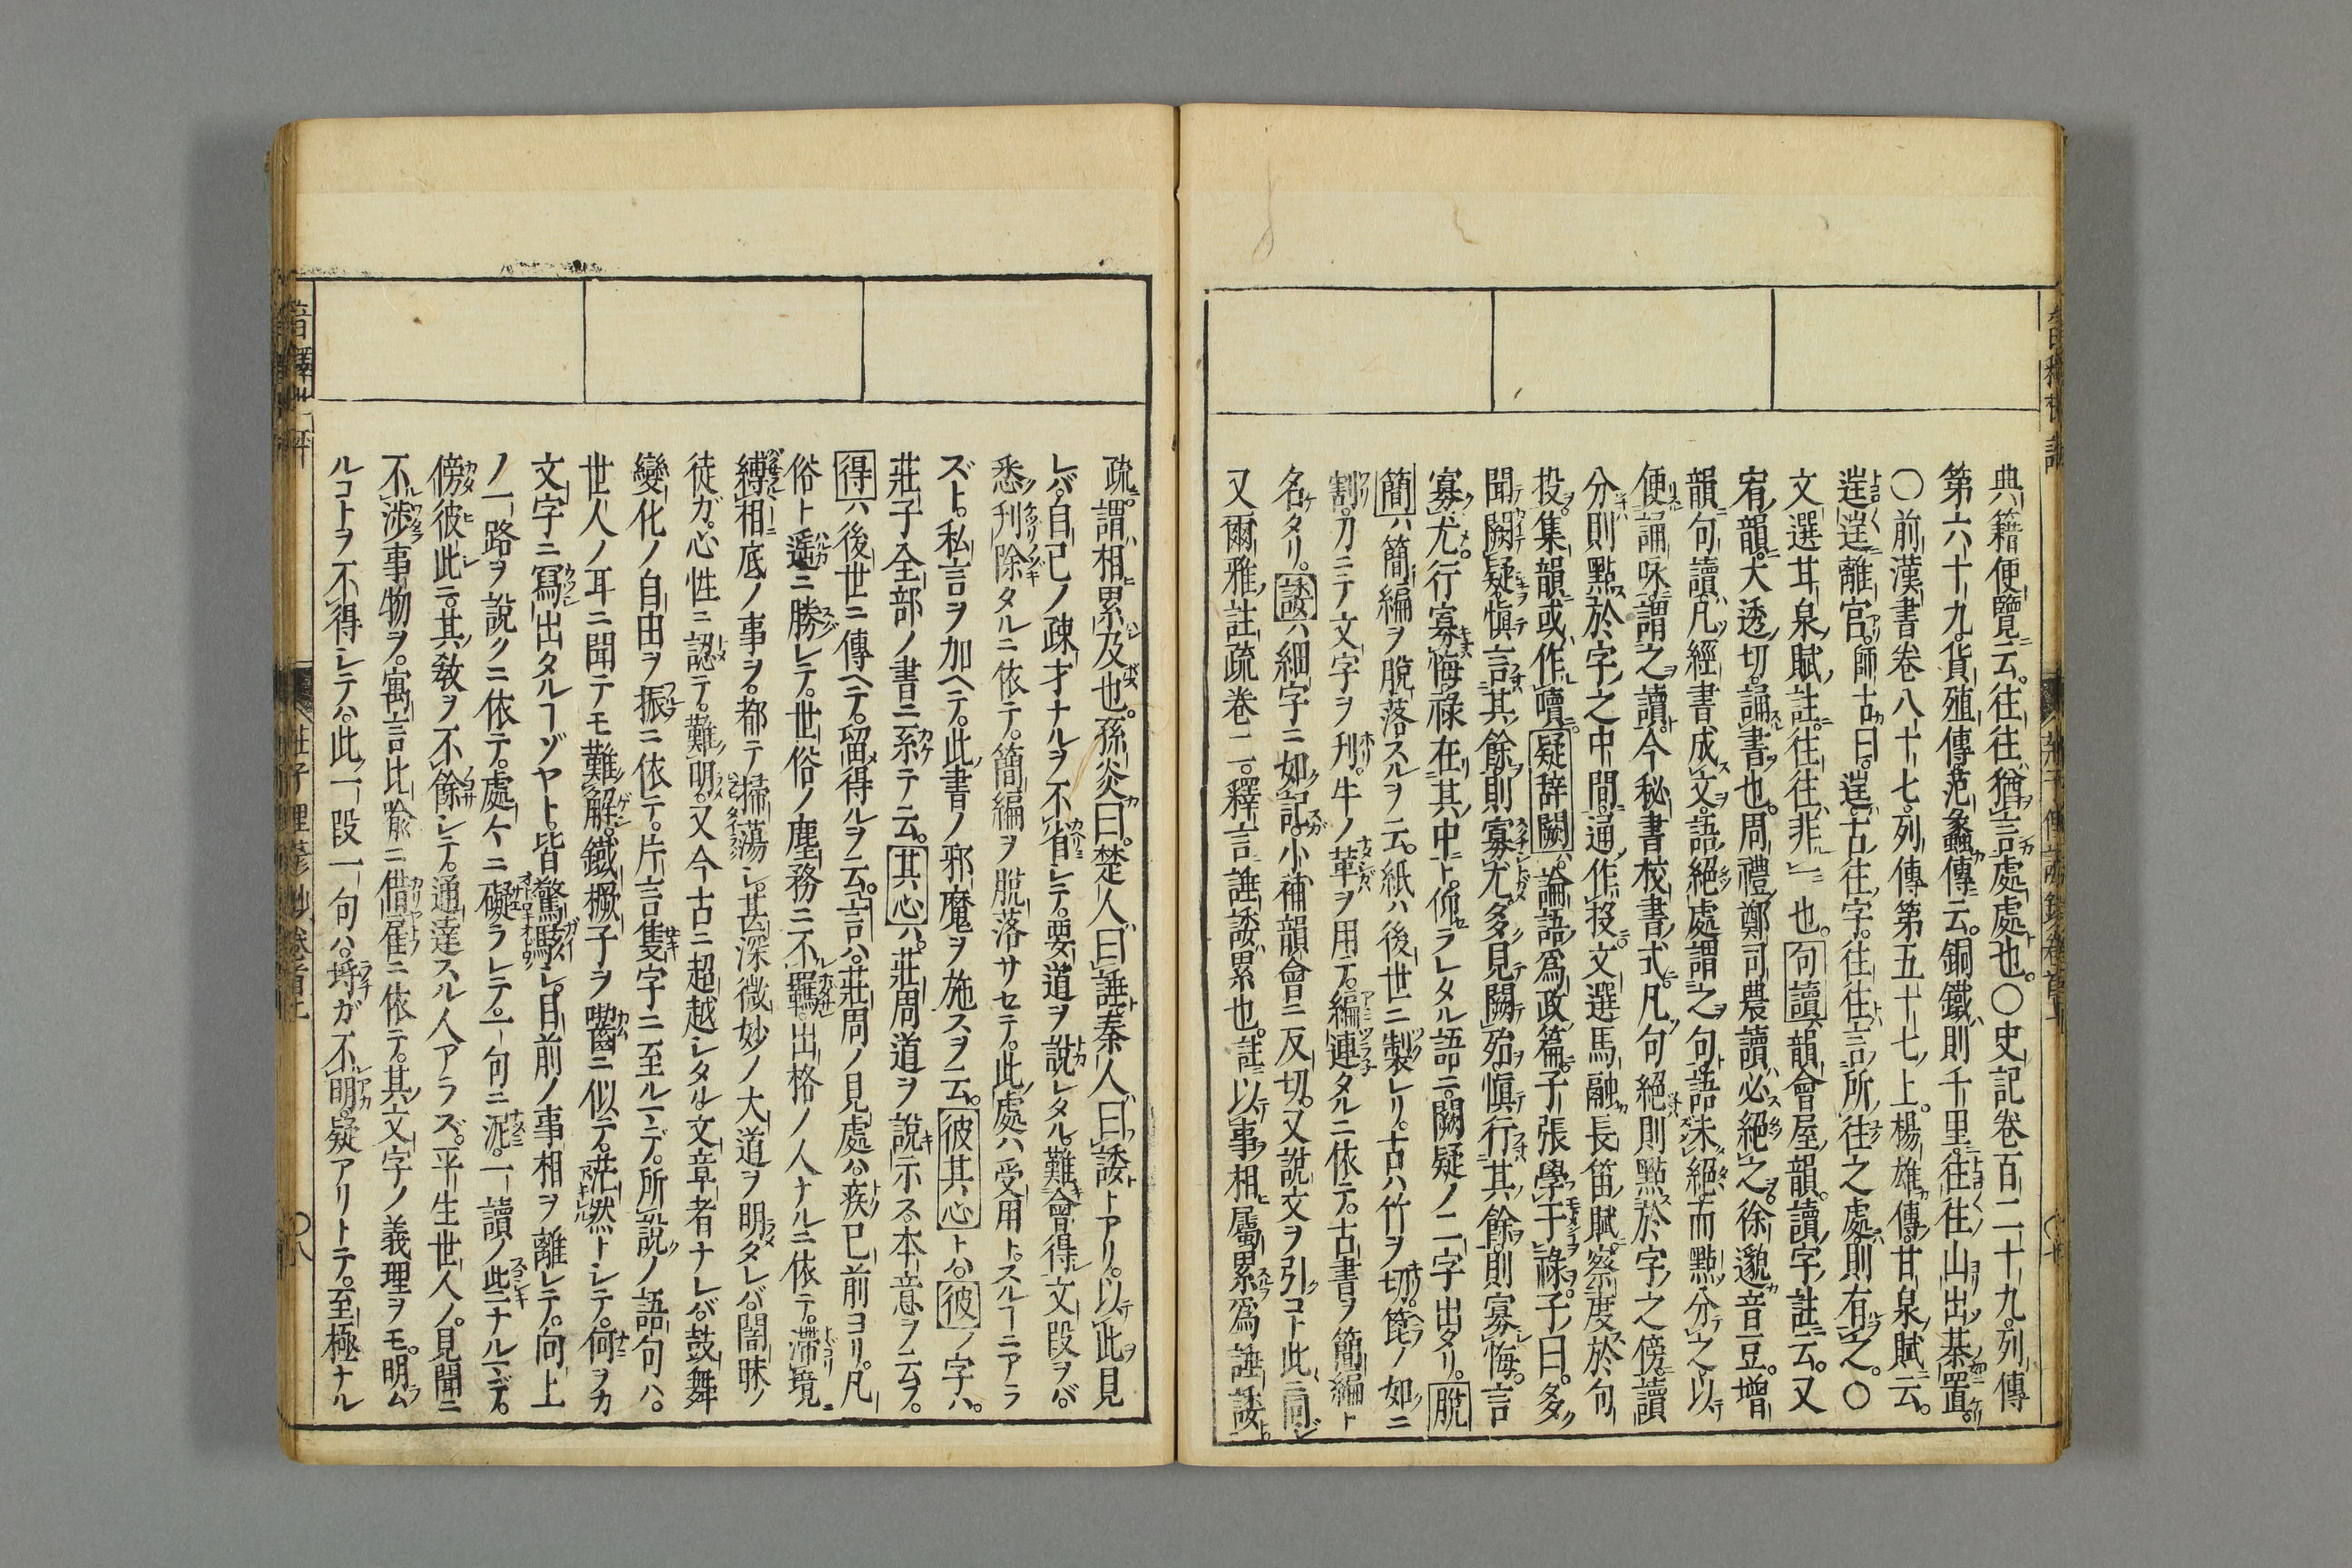 典籍便覽云。往往猶言處處也。〇史記卷百二十九。列傳
第六十九。貨殖傳。范蠡傳云。銅鐵則千里。往往山出棊置。
〇前漢書卷八十七。列傳第五十七上。楊雄傳。甘泉賦云。
迬迬離宮。師古曰。迬。古往字。往往言所往之處。則有之。〇
文選甘泉賦註。往往。非一也。句讀。韻會屋韻。讀字註云。又
宥韻。大透切。誦書也。周禮鄭司農讀必絕之。徐邈音豆。增
韻句讀。凡經書成文。語絕處謂之句。語未絕而點分之以
便誦咏謂之讀。今秘書校書式。凡句絕則點於字之傍。讀
分則點於字之中間。通作投。文選馬融長笛賦。察度於句
投。集韻或作讀。疑辞闕。論語爲政篇。子張學干祿。子曰。多
聞闕疑。愼言其餘則寡尤。多見闕殆。愼行其餘則寡悔。言
寡尤。行寡悔。祿在其中ト。仰ラレタル語ニ。闕疑ノ二字出タリ。脫
簡ハ簡編ヲ脫落スルヲ云。紙ハ後世ニ製レリ。古ハ竹ヲ切。箆ノ如ニ
割。刀ニテ文字ヲ刊。牛ノ革ヲ用テ。編連タルニ依テ。古書ヲ簡編ト
名タリ。諉ハ細字ニ如記。小補韻會ニ反切。又說文ヲ引コト此ニ同
又爾雅註疏卷二。釋言諈諉累也。註以事相屬累爲諈諉。
疏謂相累及也。孫炎曰。楚人曰諈秦人曰諉トアリ。以此見
レバ自己ノ疎才ナルヲ不省レテ。要道ヲ說レタル。難會得文段ヲバ
悉刊除タルニ依テ。簡編ヲ脫落サセテ。此處ハ受用ト。スルーニアラ
ズト。私言ヲ加ヘテ。此書ノ邪魔ヲ施スヲ云。彼其心トハ。彼ノ字ハ。
莊子全部ノ書ニ系テ云。其心ハ。莊周道ヲ說示ス。本意ヲ云フ。
得ハ後世ニ傳ヘテ。留得ルヲ云。言ハ。莊周ノ見處ハ。疾已前ヨリ。凡
俗ト遥ニ勝レテ。世俗ノ塵務ニ不羈。出格ノ人ナルニ依テ。滯境
縛相底ノ事ヲ。都テ掃蕩シ。甚深微妙ノ大道ヲ明タレバ。闇昧ノ
徒ガ。心性ニ認テ。難明。又今古ニ超越レタル。文章者ナレバ。鼓舞
變化ノ自由ヲ振ニ依テ。片言隻字ニ至ルマデ。所說ノ語句ハ。
世人ノ耳ニ聞テモ難解。鐵橛子ヲ囓ニ似テ。茫然トレテ。何ヲカ
文字ニ寫出タルーゾヤト。皆驚駭シ。目前ノ事相ヲ離レテ。向上
ノ一路ヲ說クニ依テ。處ケニ礙ラレテ。一句ニ泥。一讀ノ些ナルマデ。
傍彼此ニ。其敎ヲ不餘レテ。通達スル人アラズ。平生世人ノ。見聞ニ
不涉事物ヲ。寓言比喩ニ借雇ニ依テ。其文字ノ義理ヲモ。明ム
ルコトヲ不得レテハ。此一段一句ハ。埒ガ不明。疑アリトテ。至極ナル